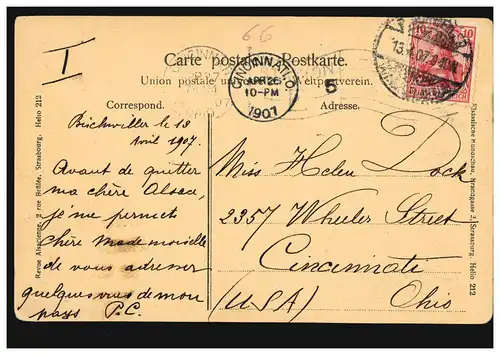 66
T
Carte postale Postkarte.
Union postale Weltpostverein.
CINCINNATI, O.
APR 26
10-PM
1907
5
Correspond.
Adresse.
Bischwiller le 13
Avril 1907.
Avant de quitter
ma chère Alsace,
je me permets
chère Mademoiselle
de vous adresser
quelques vues de mon
pays P.C.
Miss Helen Dock
2357 Wheeler Street
Cincinnati
(USA) Ohio
Revue Alsacienne, 2 rue Brûlée, Strasbourg. Helio 212
Elsässische Rundschau, Brandgasse 2, Strassburg. Helio 212
10